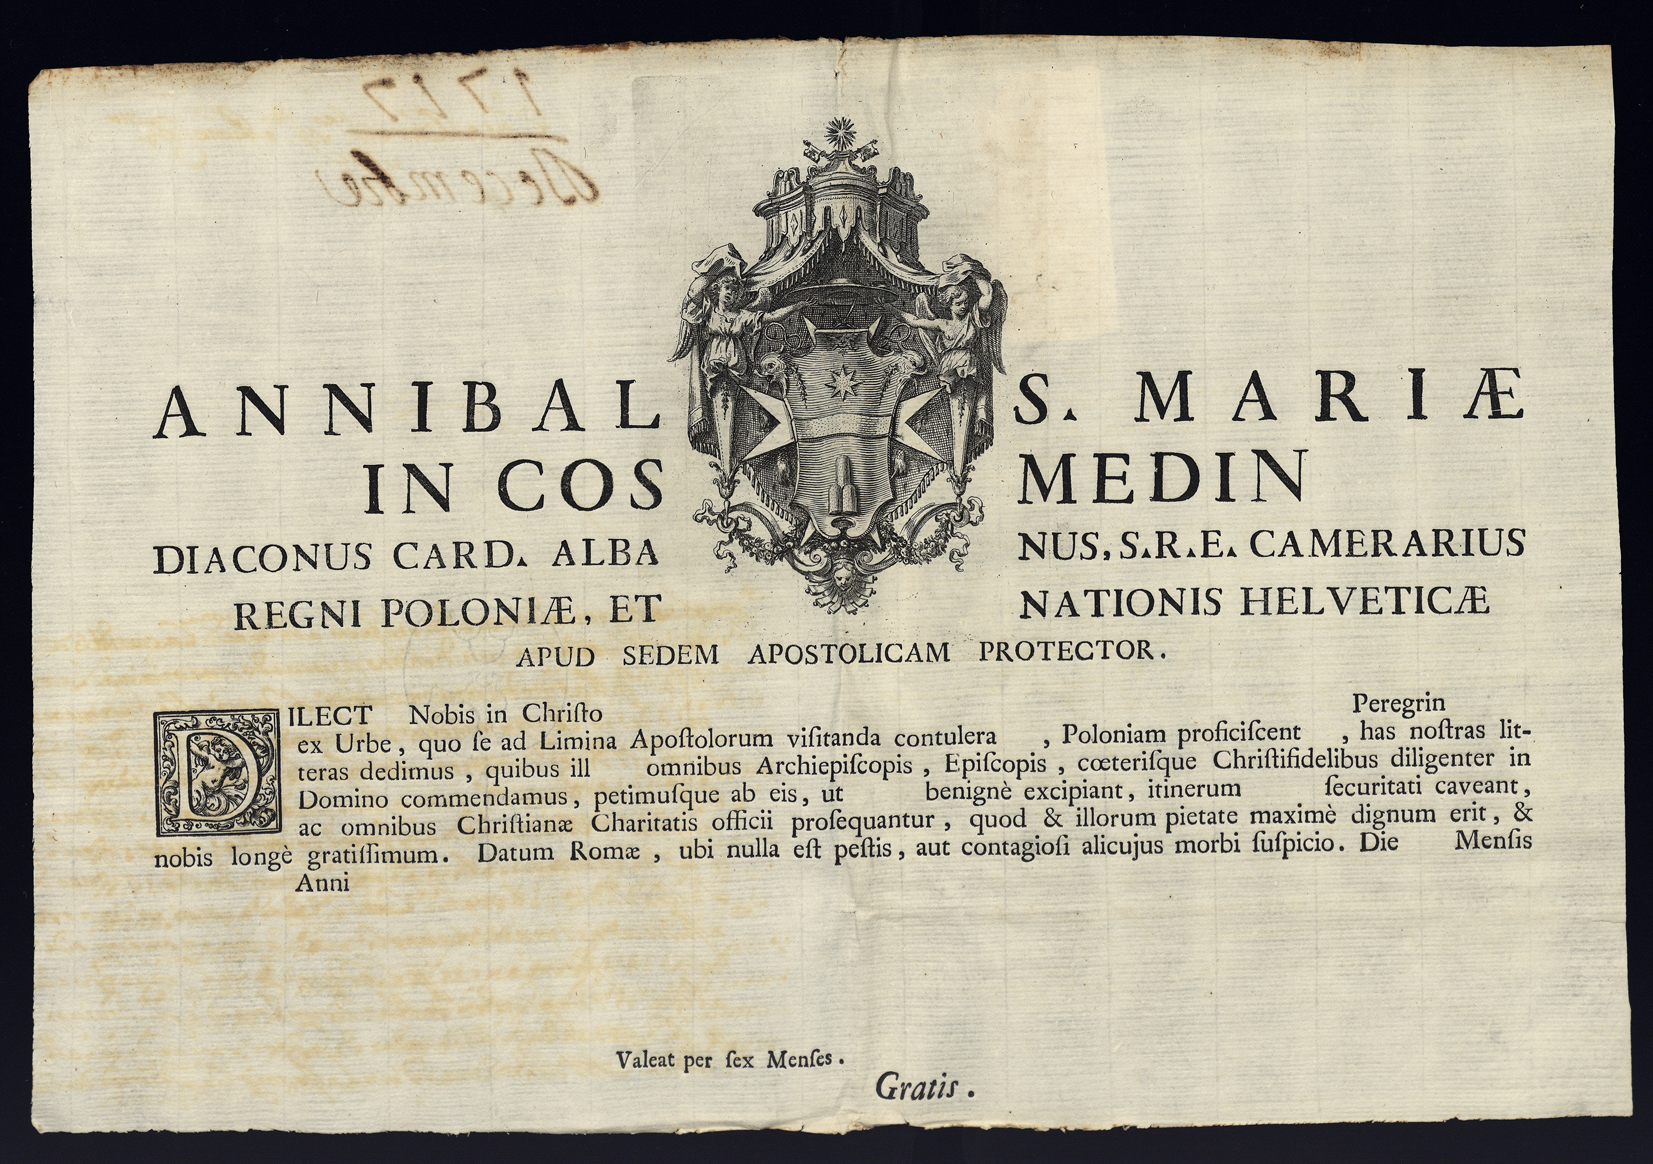 Decembre
ANNIBAL S. MARIÆ
IN COS MEDIN
DIACONUS CARD. ALBA NUS, S.R.E. CAMERARIUS
REGNI POLONIÆ, ET NATIONIS HELVETICÆ
APUD SEDEM APOSTOLICAM PROTECTOR.
DILECT Nobis in Chriſto Peregrin
ex Urbe, quo ſe ad Limina Apoſtolorum viſitanda contulera , Poloniam proficiſcent , has noſtras lit-
teras dedimus, quibus ill omnibus Archiepiſcopis, Epiſcopis, cœteriſque Chriſtifidelibus diligenter in
Domino commendamus, petimuſque ab eis, ut benignè excipiant, itinerum ſecuritati caveant,
ac omnibus Chriſtianæ Charitatis officii proſequantur, quod & illorum pietate maximè dignum erit, &
nobis longè gratiſſimum. Datum Romæ, ubi nulla eſt peſtis, aut contagioſi alicujus morbi ſuſpicio. Die Menſis
Anni
Valeat per ſex Menſes.
Gratis.